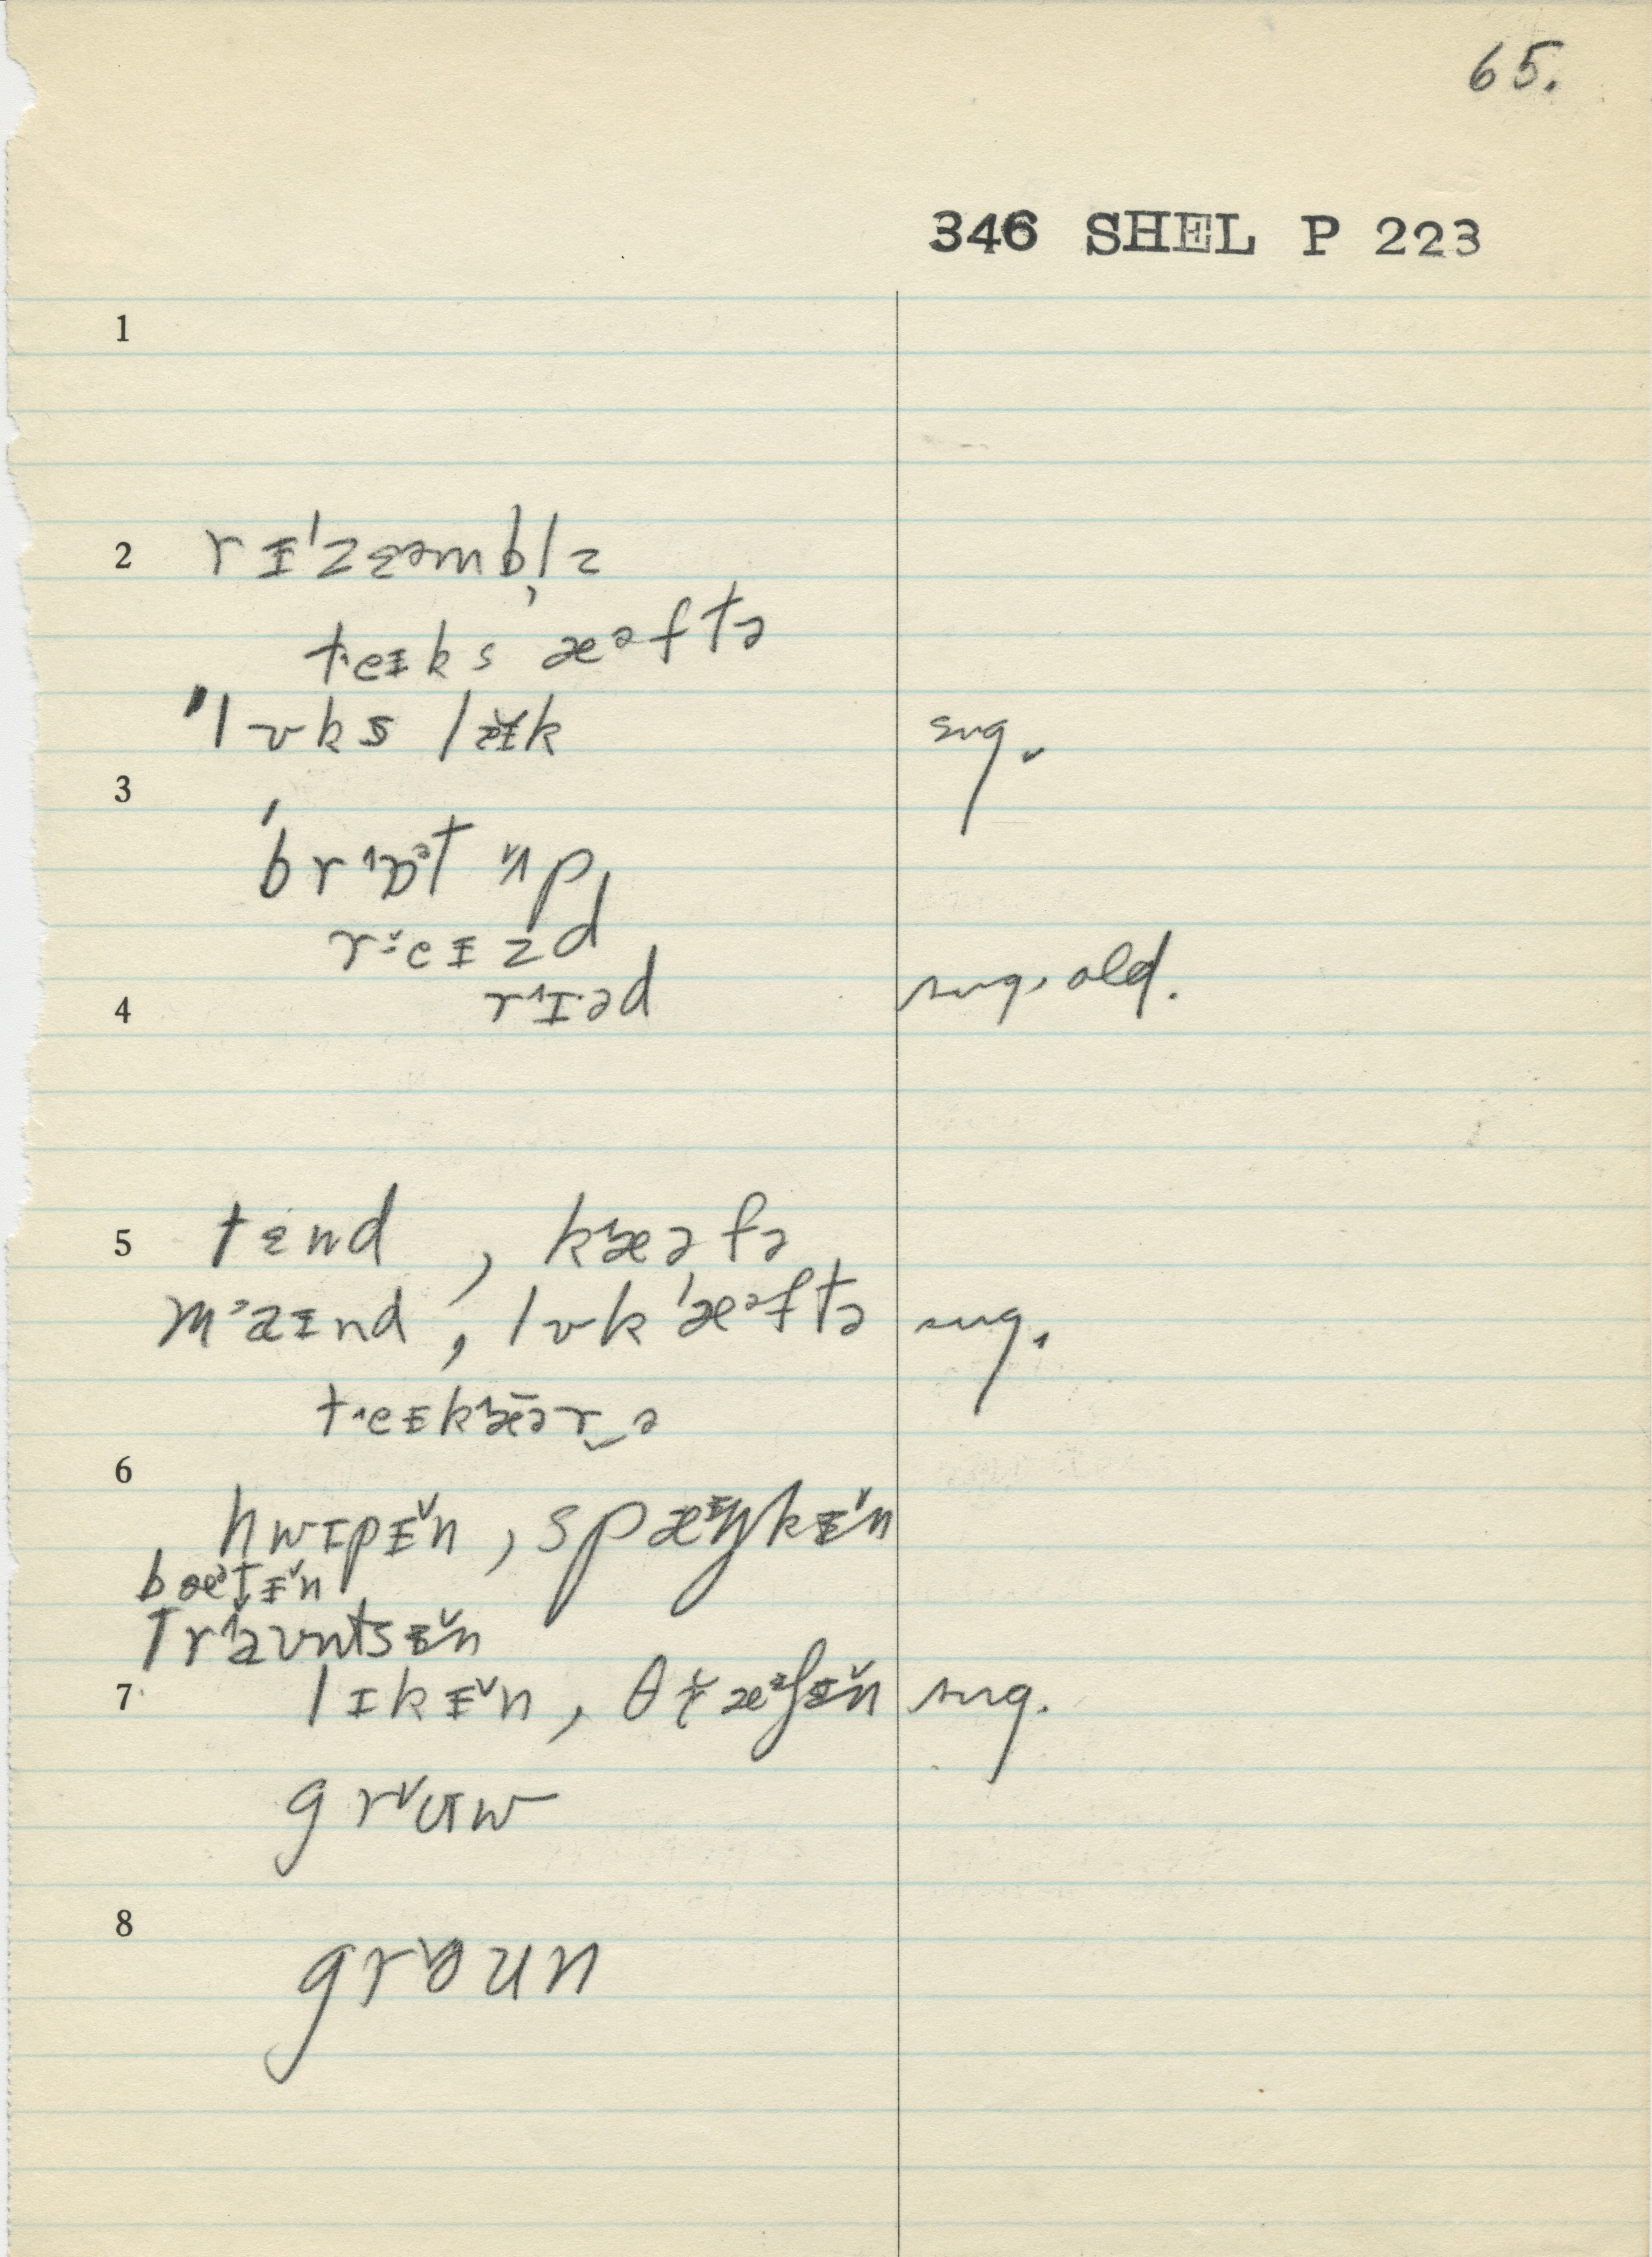 65.
346 SHEL P 223
1
2 rᵻ'zɛəmb̩lz
t·eᵻks æᵊftə
'lʊks lækᵻk sug.
3
'brɔᵊt ʌp
r·eᵻzd
4 rɪ·əd sug. old.
5 tɛnd , kæəfə
m˃aᵻnd , lʊk 'æᵊftə sug.
t·eᵻkkǣər‿ə
6
hwɪpᵻ̆n , spæᵻŋkᵻ̆n
bæᵊt̬ᵻ̆n
traʊntsᵻ̆n
7 lɪkᵻ̆n , θræᵊʃᵻ̆n sug.
grʉw
8
groun